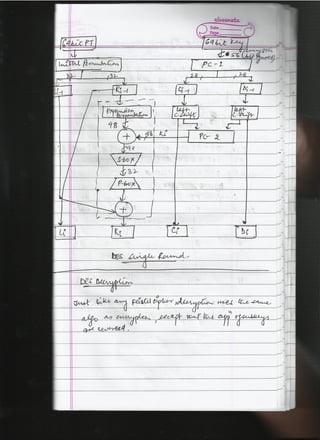 classmate
Date
Page
64bit PT
64bit Key
56
Initial Permutation
PC-1
32
32
28
28
Li-1
Ri-1
Ci-1
Di-1
Expansion Permutation
Left C-Shift
Left C-Shift
48
+
48 Ki
PC-2
48
S-BOX
32
P-BOX
+
Li
Ri
Ci
Di
DES Single Round
DES Decryption
Just like any feistel cipher decryption uses the same
algo as encryption, except that the appⁿ of subkeys
are reversed.